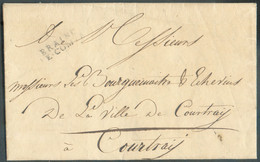 A Messieurs
BRAINE
Lc COM
Messieurs Les Bourguemaitre & Echevins
De La Ville de Courtray
à Courtray